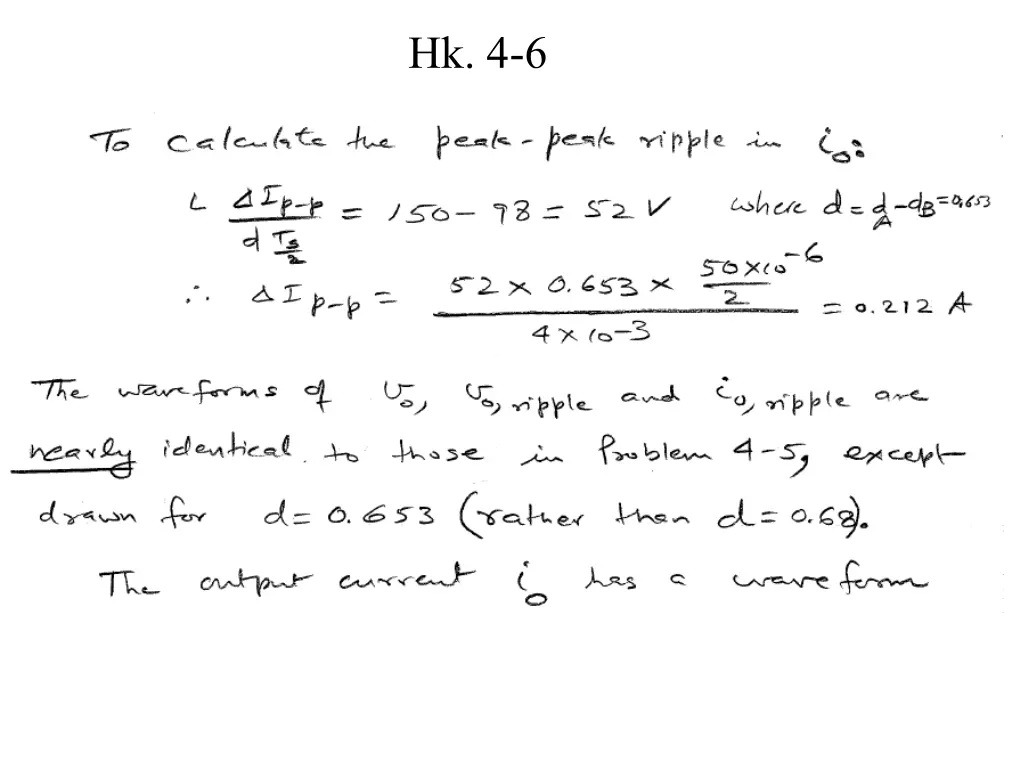 Hk. 4-6
To calculate the peak-peak ripple in i₀:
L ΔI_p-p / (d Ts/2) = 150 - 98 = 52 V where d = d_A - d_B = 0.653
∴ ΔI_p-p = (52 × 0.653 × (50×10⁻⁶)/2) / (4 × 10⁻³) = 0.212 A
The waveforms of v₀, v₀,ripple and i₀,ripple are
nearly identical to those in Problem 4-5, except
drawn for d = 0.653 (rather than d = 0.68).
The output current i₀ has a waveform